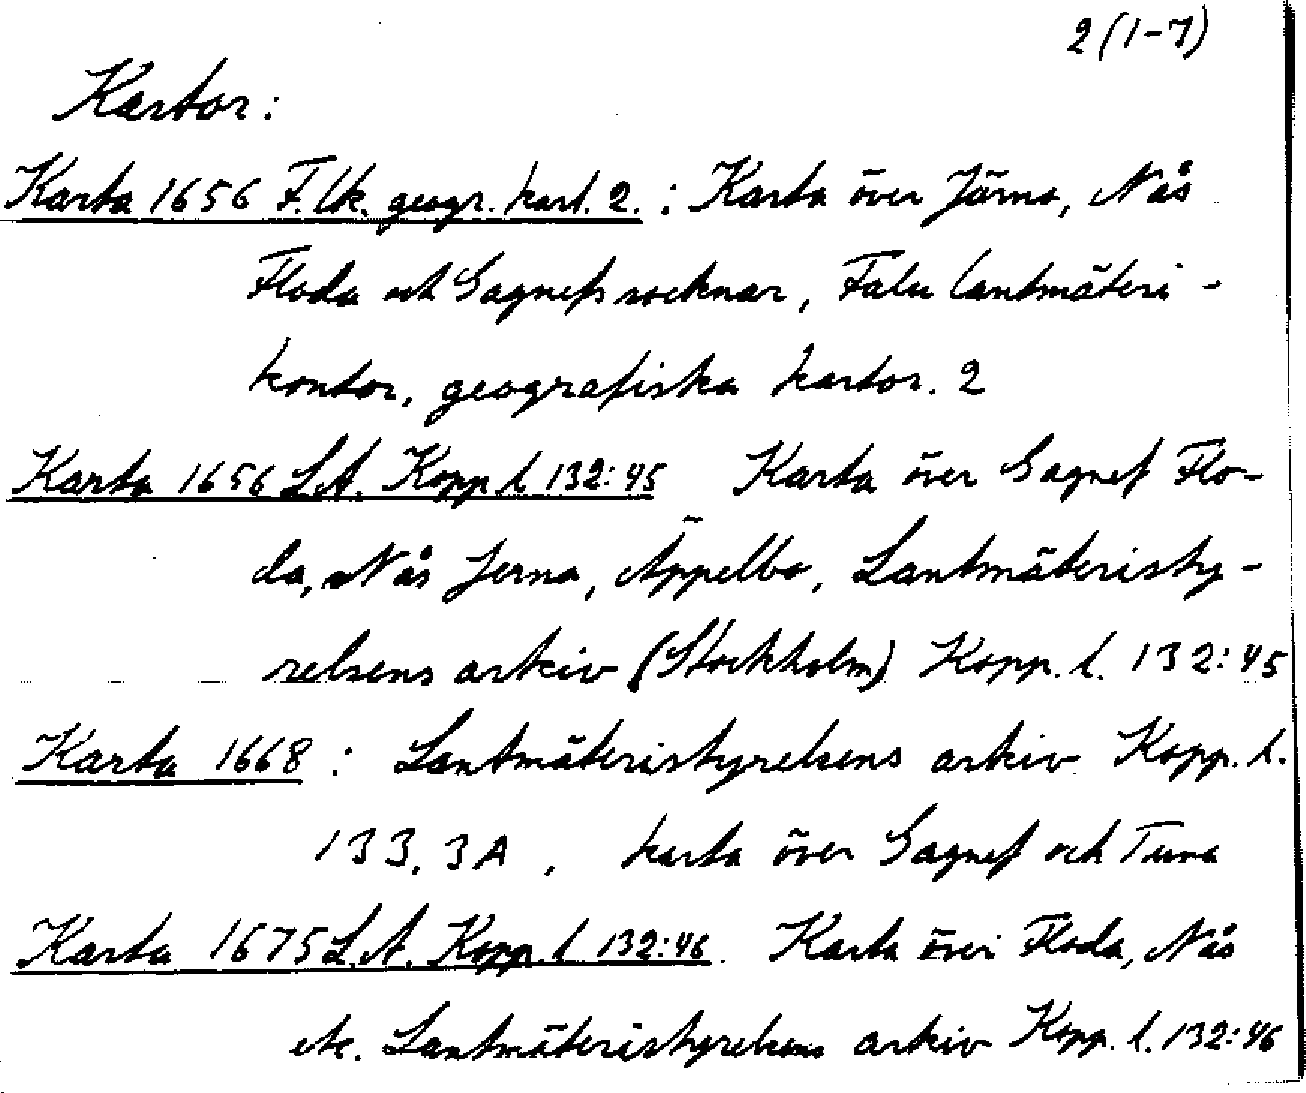 2 (1-7)
Kartor:
Karta 1656 F. lk. geogr. kart. 2. : Karta över Järna, Nås
Floda och Gagnefs socknar, Falu lantmäteri-
kontor, geografiska kartor. 2
Karta 1656 L.A. Kopp. l 132:45 Karta över Gagnef Flo-
da, Nås Jerna, Äppelbo, Lantmäteristy-
relsens arkiv (Stockholm) Kopp. l. 132:45
Karta 1668 : Lantmäteristyrelsens arkiv Kopp. l.
133, 3A , karta över Gagnef och Tuna
Karta 1675 L.A. Kopp. l 132:46. Karta över Floda, Nås
etc. Lantmäteristyrelsens arkiv Kopp. l. 132:46